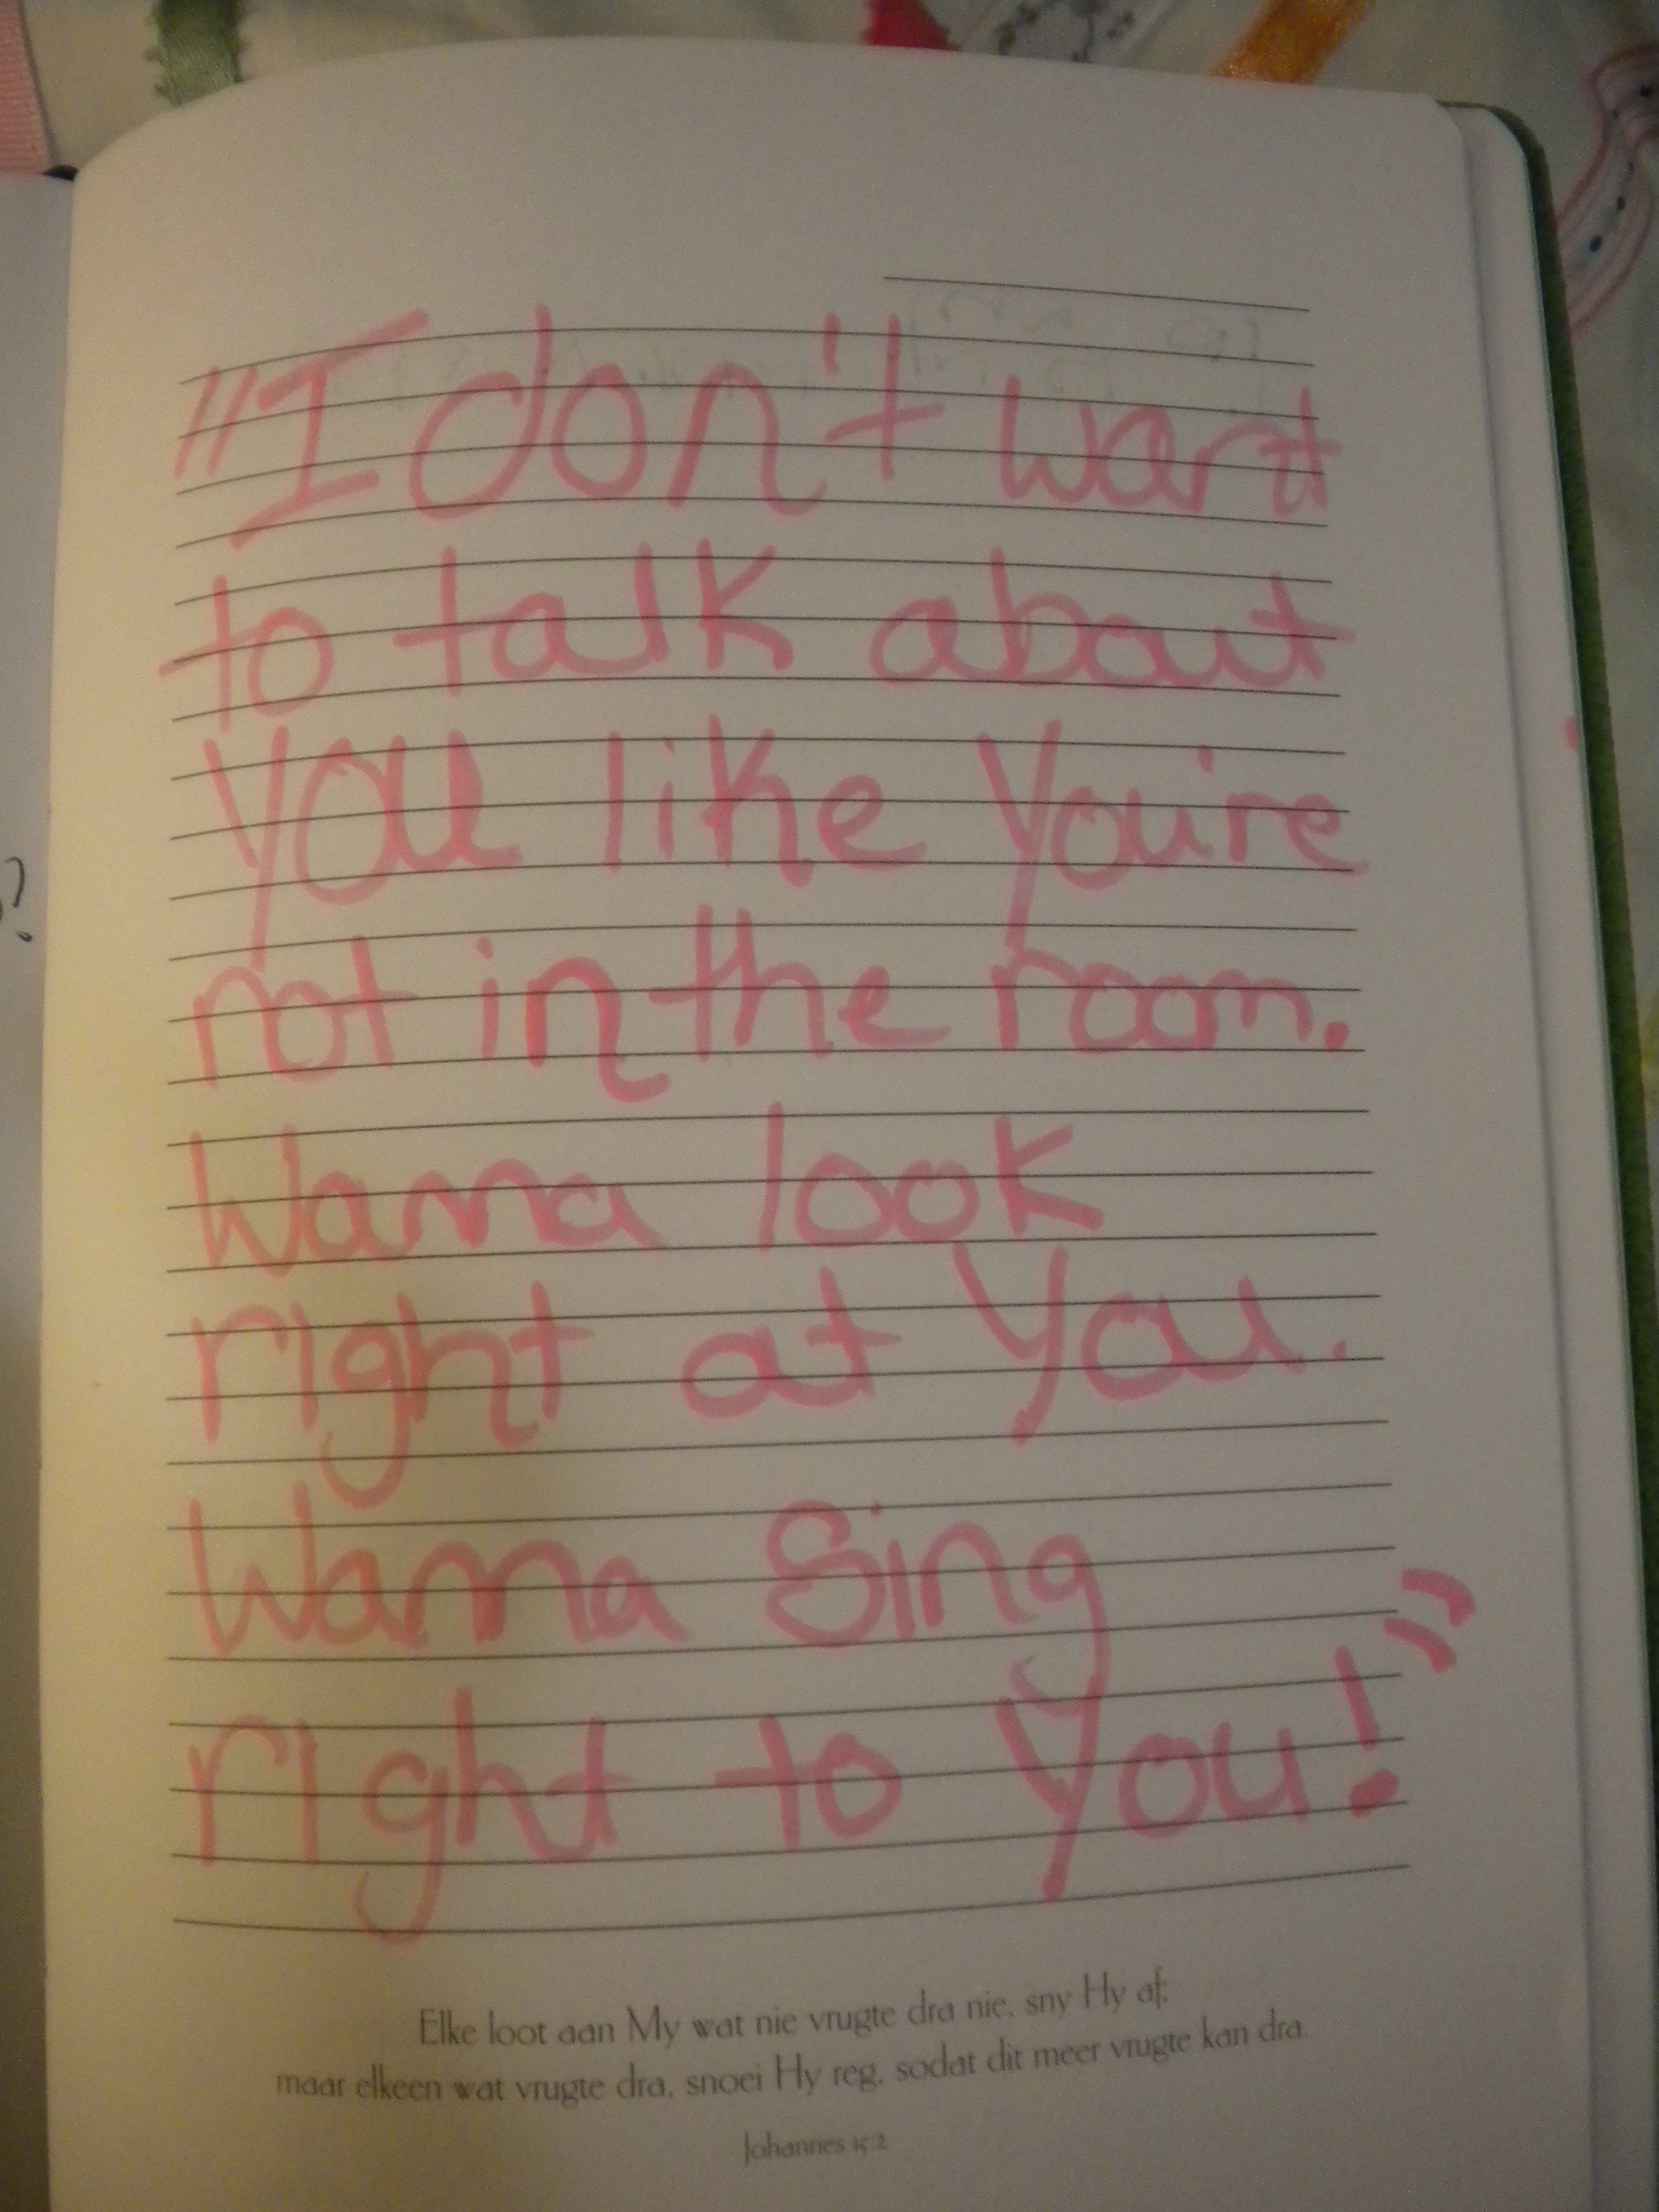 "I don't want
to talk about
you like you're
not in the room.
Wanna look
right at You.
Wanna Sing
right to You!"
Elke loot aan My wat nie vrugte dra nie, sny Hy af;
maar elkeen wat vrugte dra, snoei Hy reg, sodat dit meer vrugte kan dra.
Johannes 15:2
?